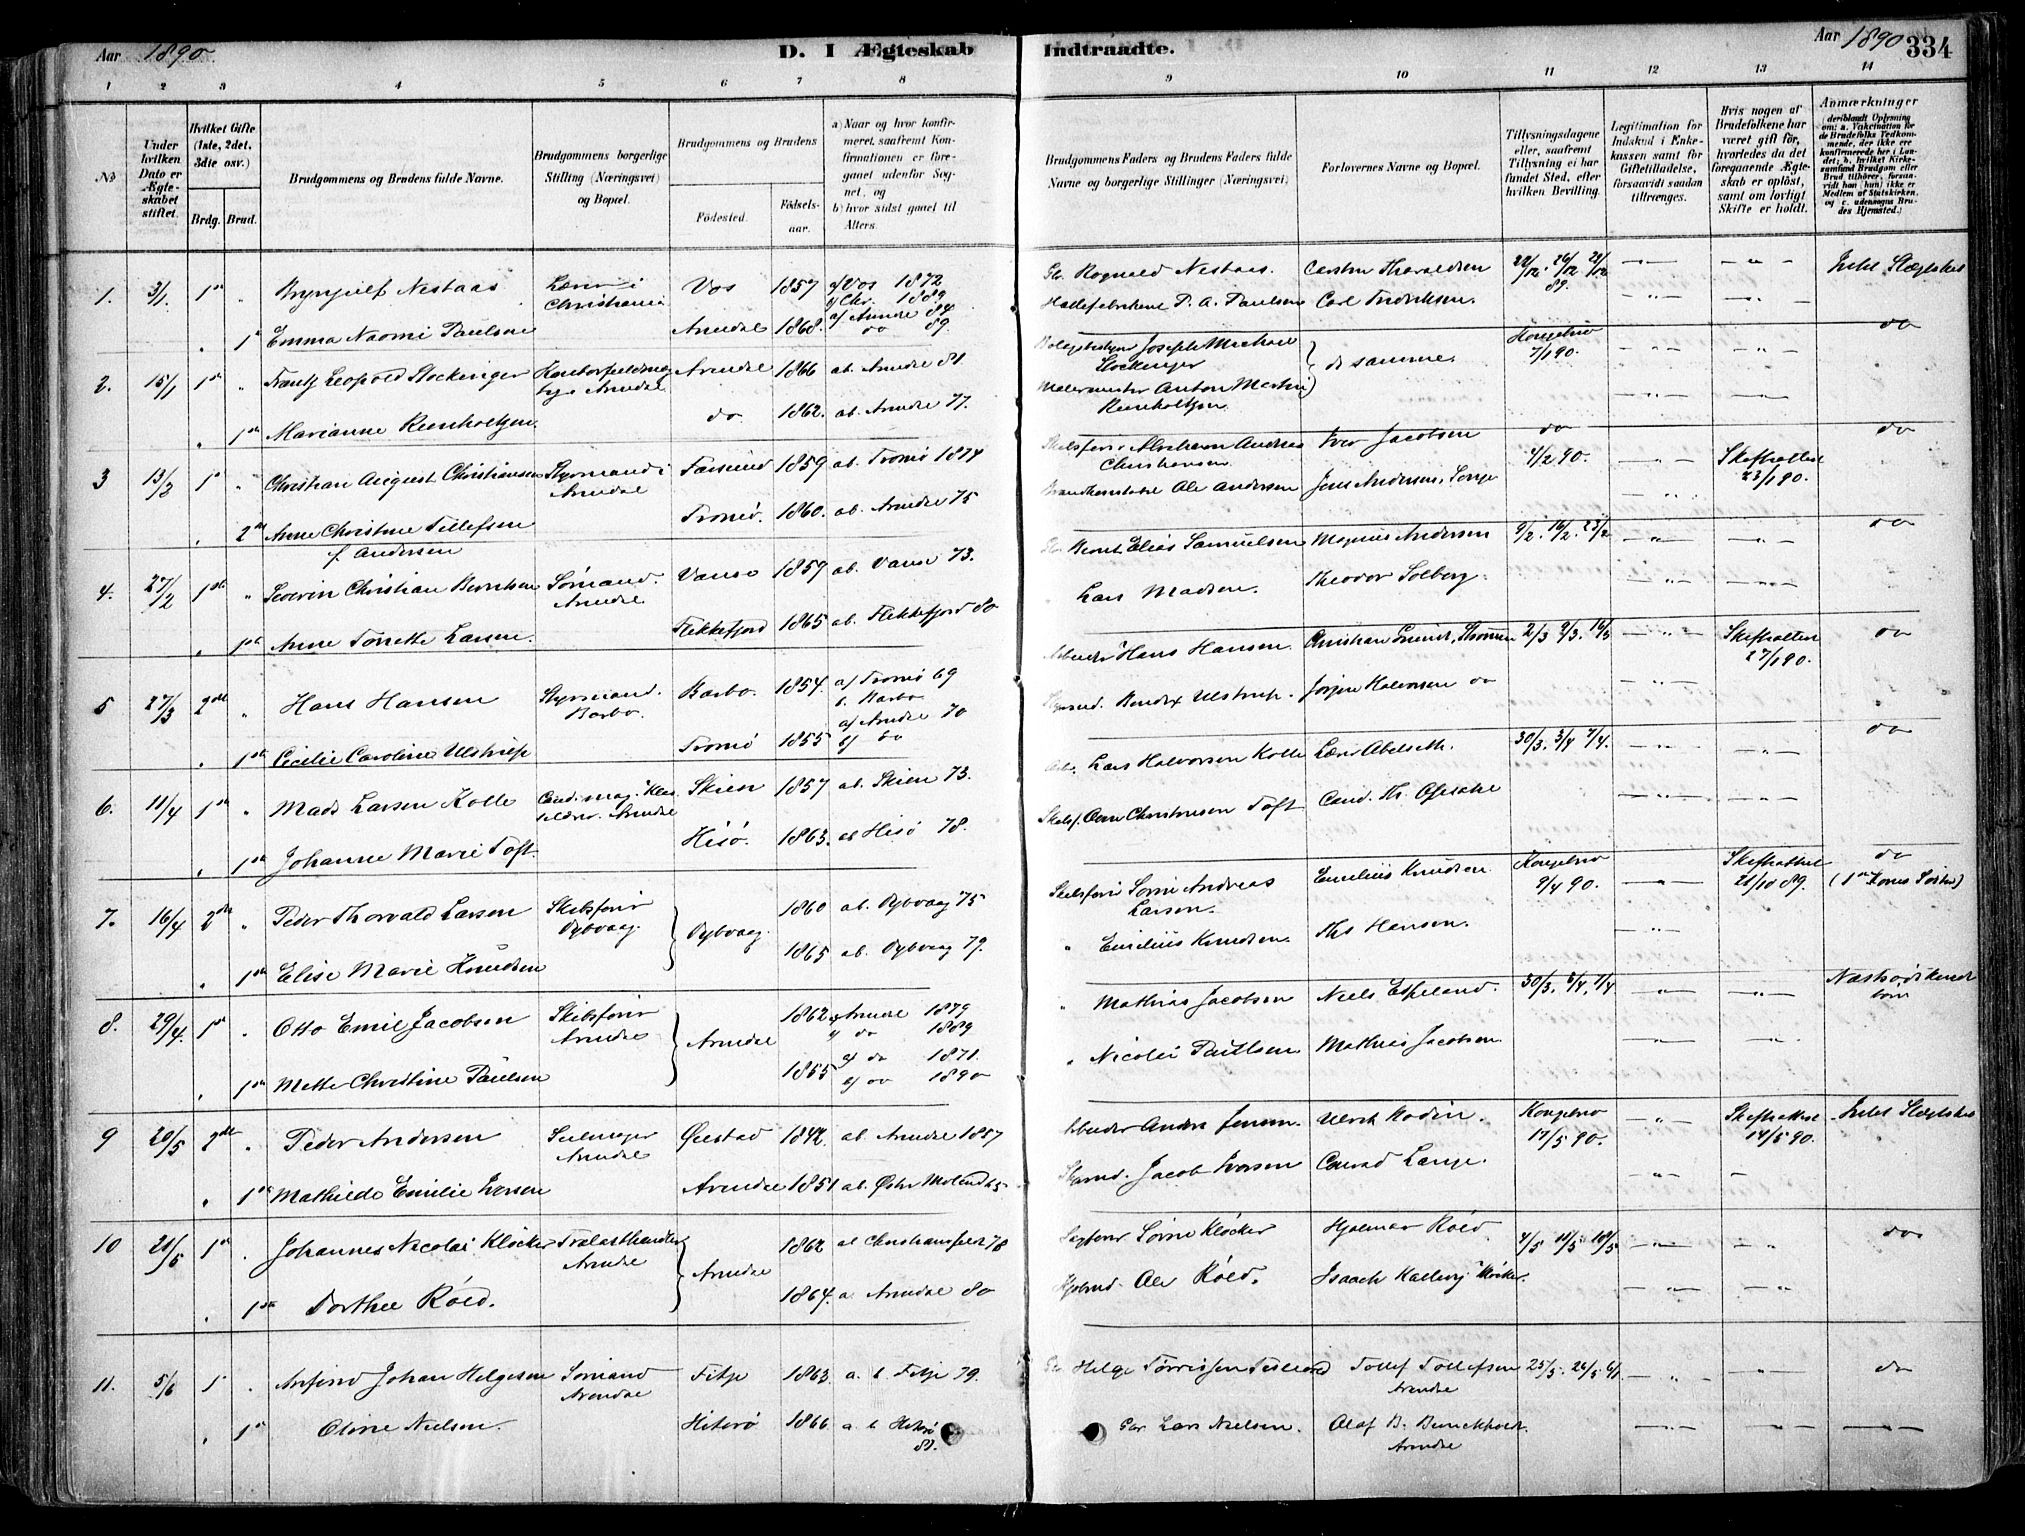 Aar 1890.
D. I Ægteskab
Indtraadte.
Aar 1890
334
1 2 3 4 5 6 7 8 9 10 11 12 13 14
No
Under hvilken Dato er Ægteskabet stiftet.
Hvilket Gifte (1ste, 2det, 3die osv.)
Brdg. Brud.
Brudgommens og Brudens fulde Navne.
Brudgommens borgerlige Stilling (Næringsvei) og Bopæl.
Brudgommens og Brudens
Födested.
Födselsaar.
a) Naar og hvor konfirmeret, saafremt Konfirmationen er foregaaet udenfor Sognet, og
b) hvor sidst gaaet til Alters.
Brudgommens Faders og Brudens Faders fulde Navne og borgerlige Stillinger (Næringsvei).
Forlovernes Navne og Bopæl.
Tillysningsdagene eller, saafremt Tillysning ei har fundet Sted, efter hvilken Bevilling.
Legitimation for Indskud i Enkekassen samt for Giftetilladelse, forsaavidt saadan tiltrænges.
Hvis nogen af Brudefolkene har været gift för, hvorledes da det foregaaende Ægteskab er oplöst, samt om lovligt Skifte er holdt.
Anmærkninger
1. 3/1 1ste Brynjulf Nestaas Lærer i Christiania Vos 1857 a) Vos 1872 b) Chr. 1889 Gb. Rognald Nestaas. Carsten Tharaldsen 22/12. 26/12 29/12 89. Intet Slægtskab
1ste Emma Naomi Paulsen Arendal 1868. a) Arendal 84 do 89. P. A. Paulsen Carl Fredriksen.
2. 15/1 1ste Frantz Leopold Stockinger Arendal Arendal 1866 ab. Arendal 81 Joseph Michael Stockinger de samme. Kongebrev 7/1 90. do
1ste Marianne Reinholtzen. do 1862. ab. Arendal 77. Malermester Anton Martin Reinholtzen
3 13/2 1ste Christian August Christiansen Styrmand Arendal Farsund 1859 ab. Tromø 1874 Skibsfører Abraham Andreas Christensen Iver Jacobsen do 4/2 90. Skifteattest 23/1 90. do
2den Anne Christine Tellefsen f. Andersen Tromø. 1860. ab. Arendal 75 Ole Andersen Jens Andersen, Songe
4. 27/2 1ste Severin Christian Berntsen Sømand. Arendal Vanse 1859 ab. Vanse 73. Bernt Elias Samuelsen Magnus Andersen 9/2. 16/2. 23/2 do
1ste Anne Tonette Larsen. Flekkefjord 1865 ab. Flekkefjord 80 Lars Madsen. Theodor Solberg.
5 27/3 2det Hans Hansen Styrmand. Barbo. Barbo. 1854. a) Tromø 69 b. Barbo Hans Hansen. Christian 2/3 9/3. 16/3 Skifteattest 27/1 90. do
1ste Cecilie Caroline Ulstrup Tromø 1855 a) Arendal 70 b) do Bendix Ulstrup. Jørgen Halvorsen do
6. 11/4 1ste Mads Larsen Kolle Cand. mag. Arendal Skien 1857 ab. Skien 73. Lars Halvorsen Kolle Lærer Abelseth. 30/3. 3/4 7/4. do
1ste Johanne Marie Toft. Hisø. 1863. ab Hisø 78. Skibsf. Christensen Toft
7. 16/4 2det Peder Thorvald Larsen Skibsfører Dybvaag. Dybvaag. 1860 ab. Dybvaag 75 Skibsfører Søren Andreas Larsen. Emilius Knudsen. Kongebrev 9/4 90. Skifteattest 21/10 89. do (1ste Kones Søster)
1ste Elise Marie Knudsen 1865 ab. Dybvaag 79. " Emilius Knudsen. Ths Hansen.
8. 29/4. 1ste Otto Emil Jacobsen Skibsfører Arendal Arendal 1862 a) Arendal 1879 b) do 1889 " Mathias Jacobsen Niels Espeland. 30/3, 3/4, 7/4 Næstsødskendebørn
1ste Mette Christine Paulsen 1855 a) do 1871. b) do 1890 " Nicolai Paulsen Mathias Jacobsen
9 20/5 2det Peder Andersen Seilmager Arendal Øiestad 1842 ab. Arendal 1857 Anders Jensen. Ulrik Bodin. Kongebrev 17/5 90. Skifteattest 14/5 90. Intet Slægtskab
1ste Mathilde Emilie Iversen Arendal 1851 ab. Østre Moland 65 Jacob Iversen Conrad Lange.
10 21/5 1ste Johannes Nicolai Kløcker Trælasthandler Arendal Arendal 1862 ab Christianssand 78 Søren Kløcker Hjalmar Röed. 4/5 11/5 18/5 do
1ste Dorthee Röed. 1864. a. Arendal 80 Ole Röed. Isaach Kallevig Kløcker.
11. 5/6 1 Anfind Johan Helgesen Sømand Arendal Fitje 1863 a. b Fitje 79. Helge Tørrissen Tollef Tollefsen Arendal 25/5. 26/5 6/ do
1ste Oline Nielsen. Hiterø 1866 a. b Hiterø 81. Gdr. Lars Nielsen. Olaf B. Arendal